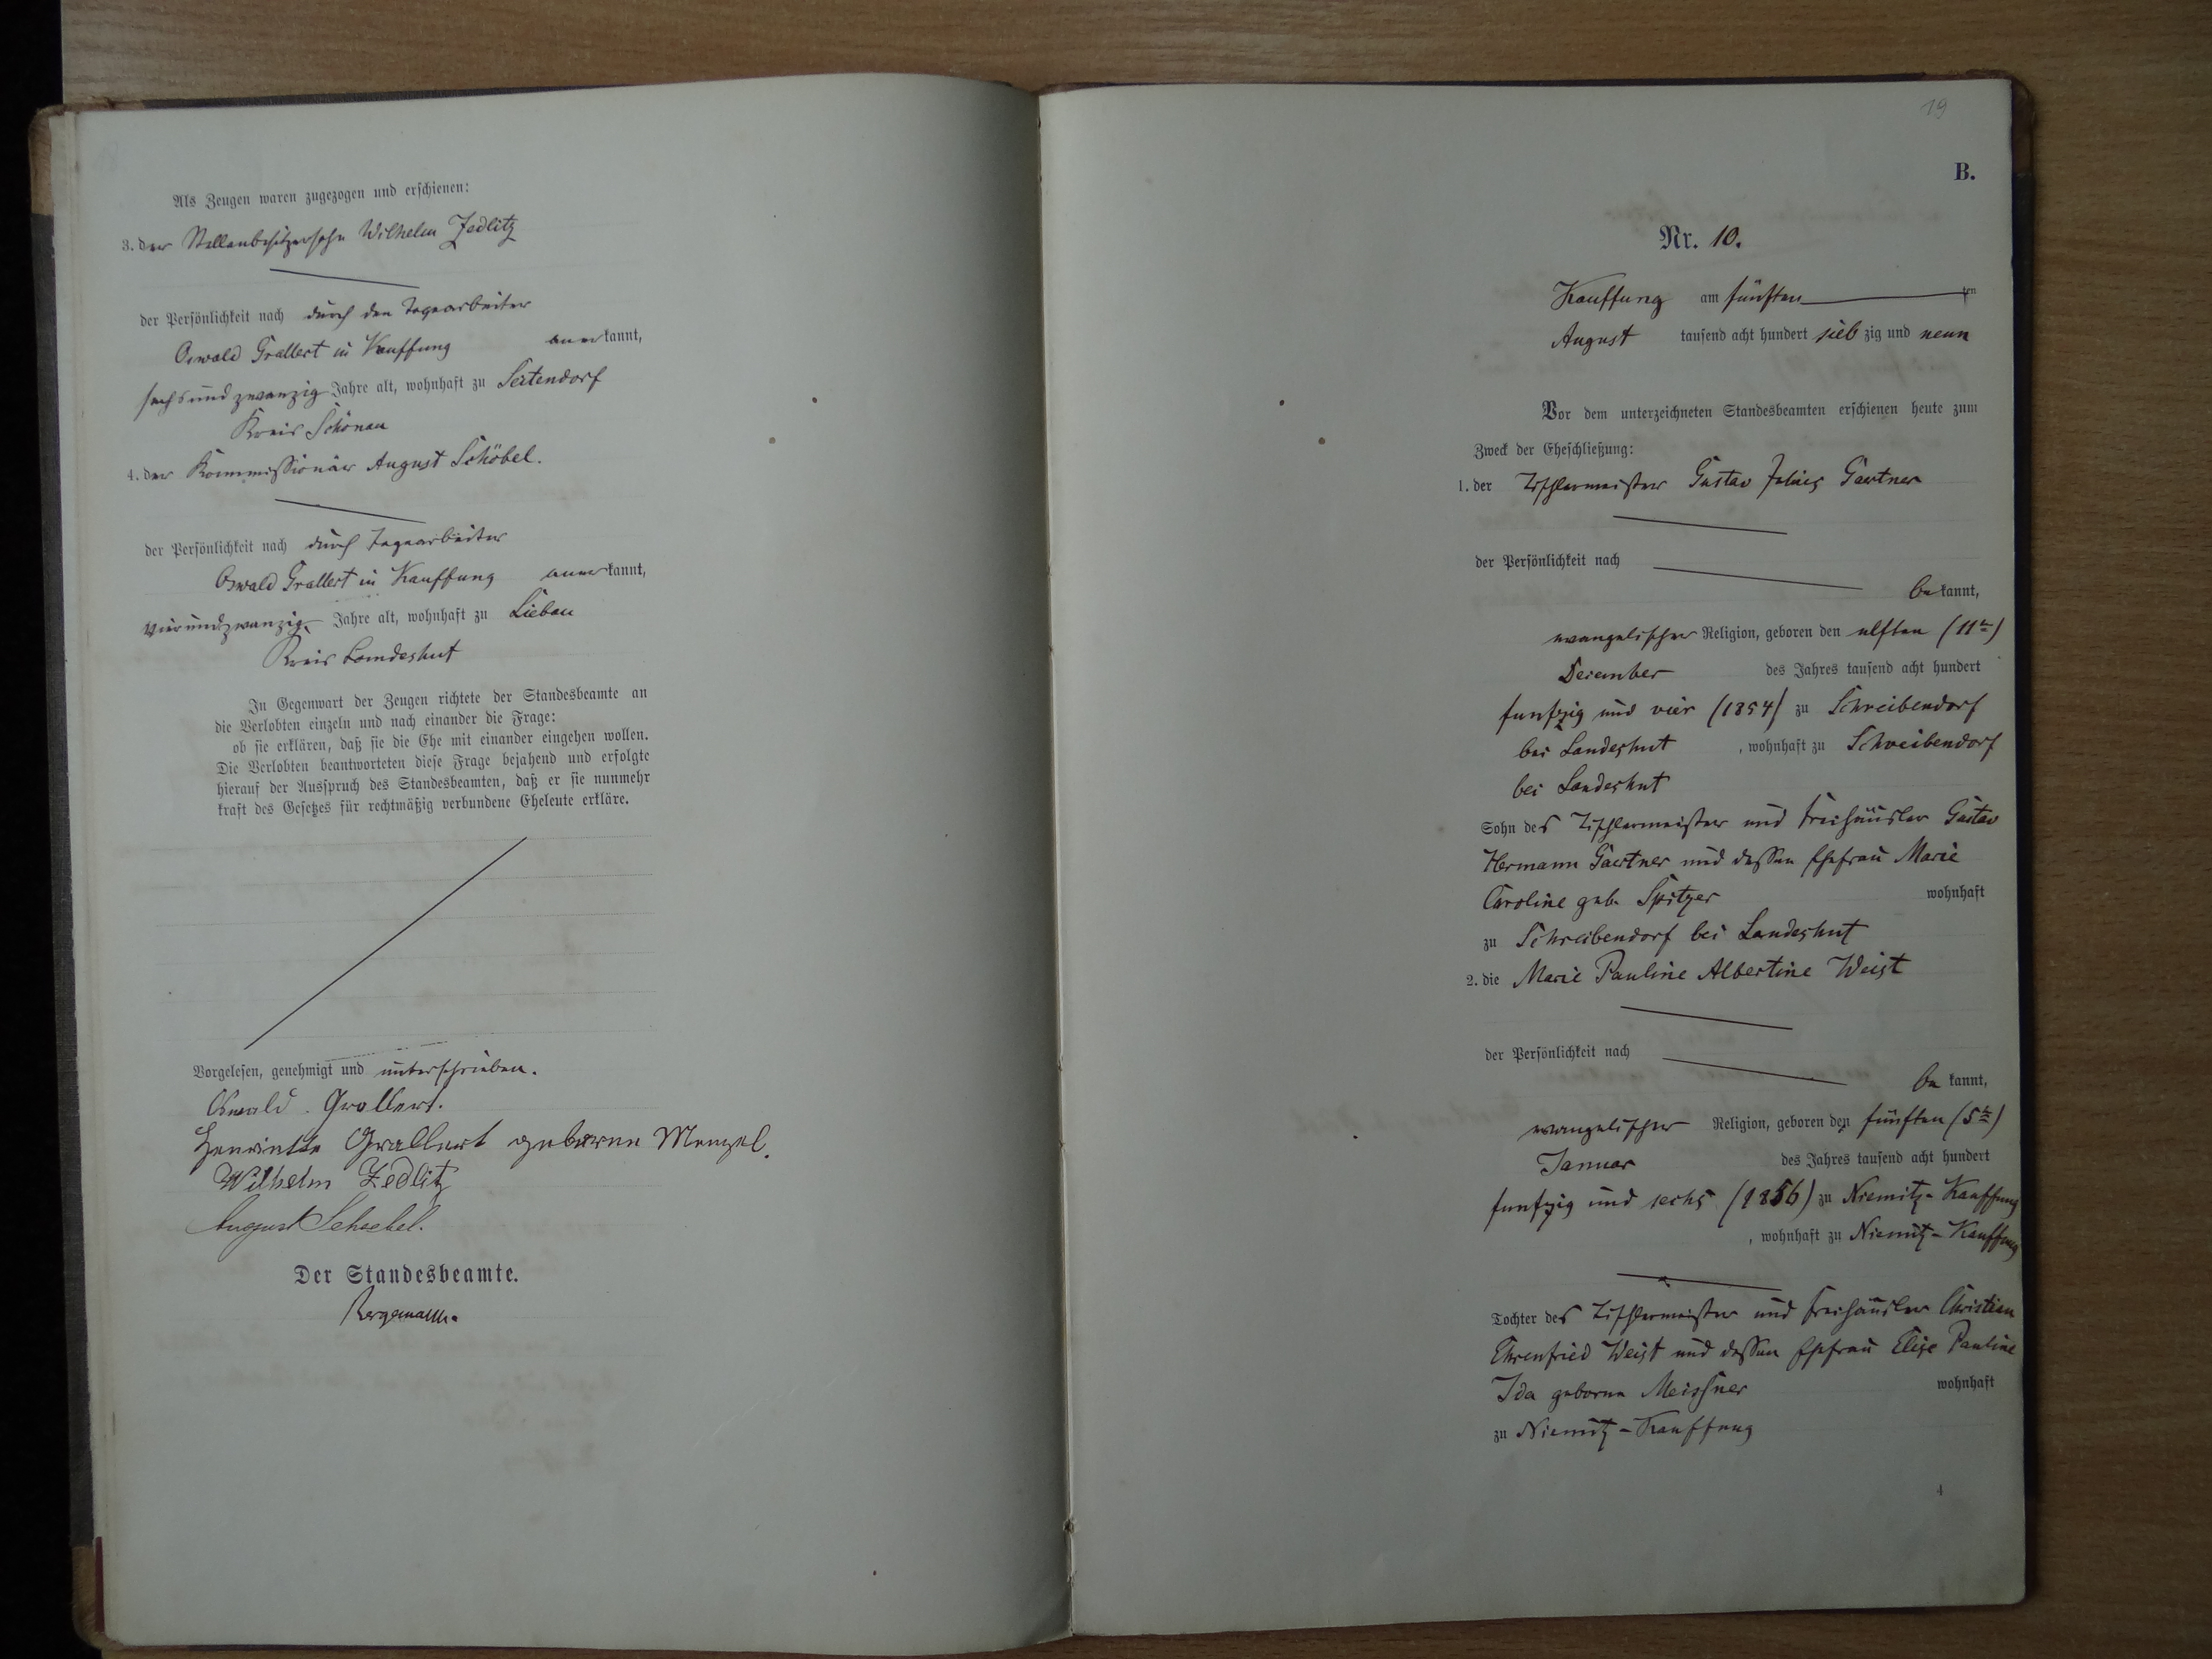 Als Zeugen waren zugezogen und erschienen:
3. der Stellenbesitzersohn Wilhelm Zedlitz
der Persönlichkeit nach durch den Tagearbeiter
Oswald Grallert in Kauffung anerkannt,
sechsundzwanzig Jahre alt, wohnhaft zu Seitendorf
Kreis Schönau
4. der Kommissionär August Schöbel.
der Persönlichkeit nach durch Tagearbeiter
Oswald Grallert in Kauffung anerkannt,
vierundzwanzig Jahre alt, wohnhaft zu Liebau
Kreis Landeshut
In Gegenwart der Zeugen richtete der Standesbeamte an
die Verlobten einzeln und nach einander die Frage:
ob sie erklären, daß sie die Ehe mit einander eingehen wollen.
Die Verlobten beantworteten diese Frage bejahend und erfolgte
hierauf der Ausspruch des Standesbeamten, daß er sie nunmehr
kraft des Gesetzes für rechtmäßig verbundene Eheleute erkläre.
Vorgelesen, genehmigt und unterschrieben.
Oswald Grallert.
Henriette Grallert geborene Menzel.
Wilhelm Zedlitz
August Schoebel.
Der Standesbeamte.
Bergemann.
19
B.
Nr. 10.
Kauffung am fünften ten
August tausend acht hundert siebzig und neun
Vor dem unterzeichneten Standesbeamten erschienen heute zum
Zweck der Eheschließung:
1. der Tischlermeister Gustav Julius Gaertner
der Persönlichkeit nach
bekannt,
evangelischer Religion, geboren den elften (11te)
December des Jahres tausend acht hundert
funfzig und vier (1854) zu Schreibendorf
bei Landeshut, wohnhaft zu Schreibendorf
bei Landeshut
Sohn des Tischlermeister und Freihäusler Gustav
Hermann Gaertner und dessen Ehefrau Marie
Caroline geb. Spitzer wohnhaft
zu Schreibendorf bei Landeshut
2. die Marie Pauline Albertine Weist
der Persönlichkeit nach
bekannt,
evangelischer Religion, geboren den fünften (5te)
Januar des Jahres tausend acht hundert
funfzig und sechs (1856) zu Niemitz-Kauffung
, wohnhaft zu Niemitz-Kauffung
Tochter des Tischlermeister und Freihäusler Christian
Ehrenfried Weist und dessen Ehefrau Elise Pauline
Ida geborne Meissner wohnhaft
zu Niemitz-Kauffung
4